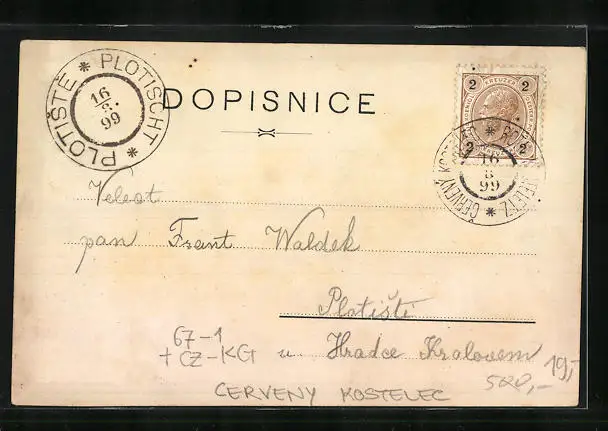 PLOTIŠTĚ * PLOTISCHT *
16
8.
99
DOPISNICE
2 KREUZER 2
2 2
ČERVENÝ
16
8
99
pan Frant Waldek
Plotišti
67-1
+ CZ-KG u Hradce Kralovem
19,-
520,-
CERVENY KOSTELEC